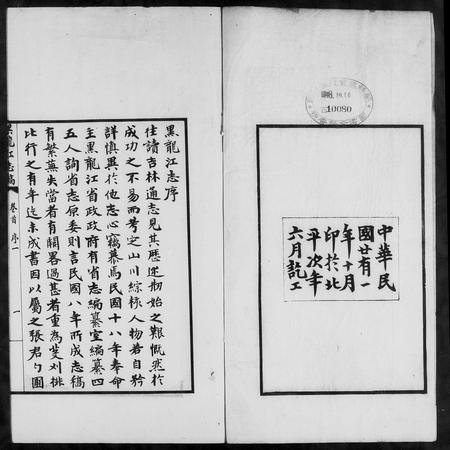 中華民
國廿有一
年十月
印於北
平次年
六月訖工
10080
黑龍江志序
往讀吉林通志見其歷述刱始之艱慨然於
成功之不易而考定山川綜核人物若自矜
詳慎異於他志心竊慕焉民國十八年奉命
主黑龍江省政政府有省志編纂室編纂四
五人詢省志原委則言民國八年所成志稿
有繁蕪失當者有闕略過甚者重為芟刈排
比行之有年迄未成書因以屬之張君勺圃
黑龍江志稿
卷首 序一
一